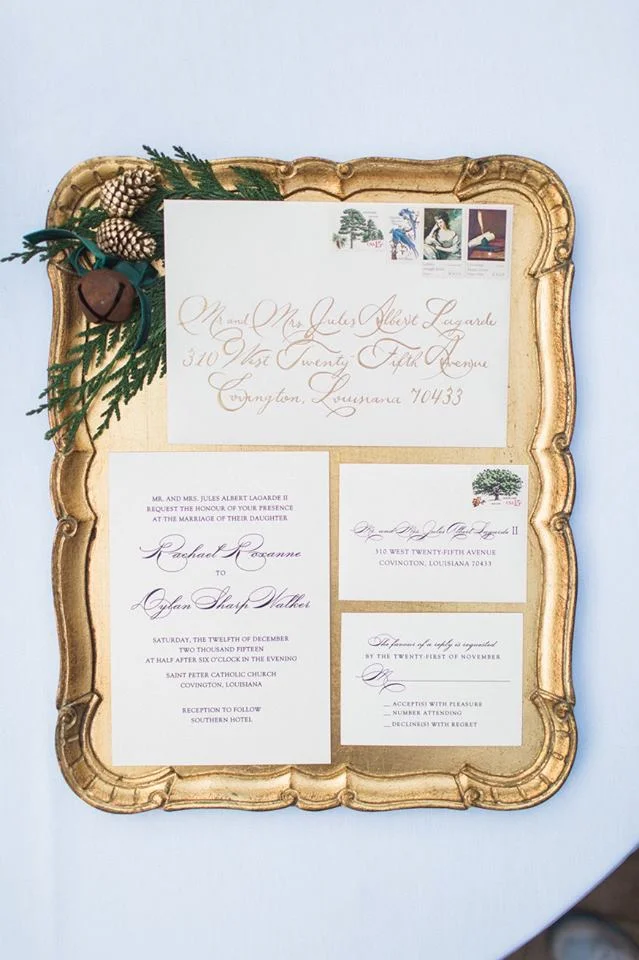 USA 15c
Mr. and Mrs. Jules Albert Lagarde
310 West Twenty-Fifth Avenue
Covington, Louisiana 70433
MR. AND MRS. JULES ALBERT LAGARDE II
REQUEST THE HONOUR OF YOUR PRESENCE
AT THE MARRIAGE OF THEIR DAUGHTER
Rachael Roxanne
TO
Dylan Sharp Walker
SATURDAY, THE TWELFTH OF DECEMBER
TWO THOUSAND FIFTEEN
AT HALF AFTER SIX O'CLOCK IN THE EVENING
SAINT PETER CATHOLIC CHURCH
COVINGTON, LOUISIANA
RECEPTION TO FOLLOW
SOUTHERN HOTEL
USA 15c
Mr. and Mrs. Jules Albert Lagarde II
310 WEST TWENTY-FIFTH AVENUE
COVINGTON, LOUISIANA 70433
The favour of a reply is requested
BY THE TWENTY-FIRST OF NOVEMBER
M
__ ACCEPT(S) WITH PLEASURE
__ NUMBER ATTENDING
__ DECLINE(S) WITH REGRET